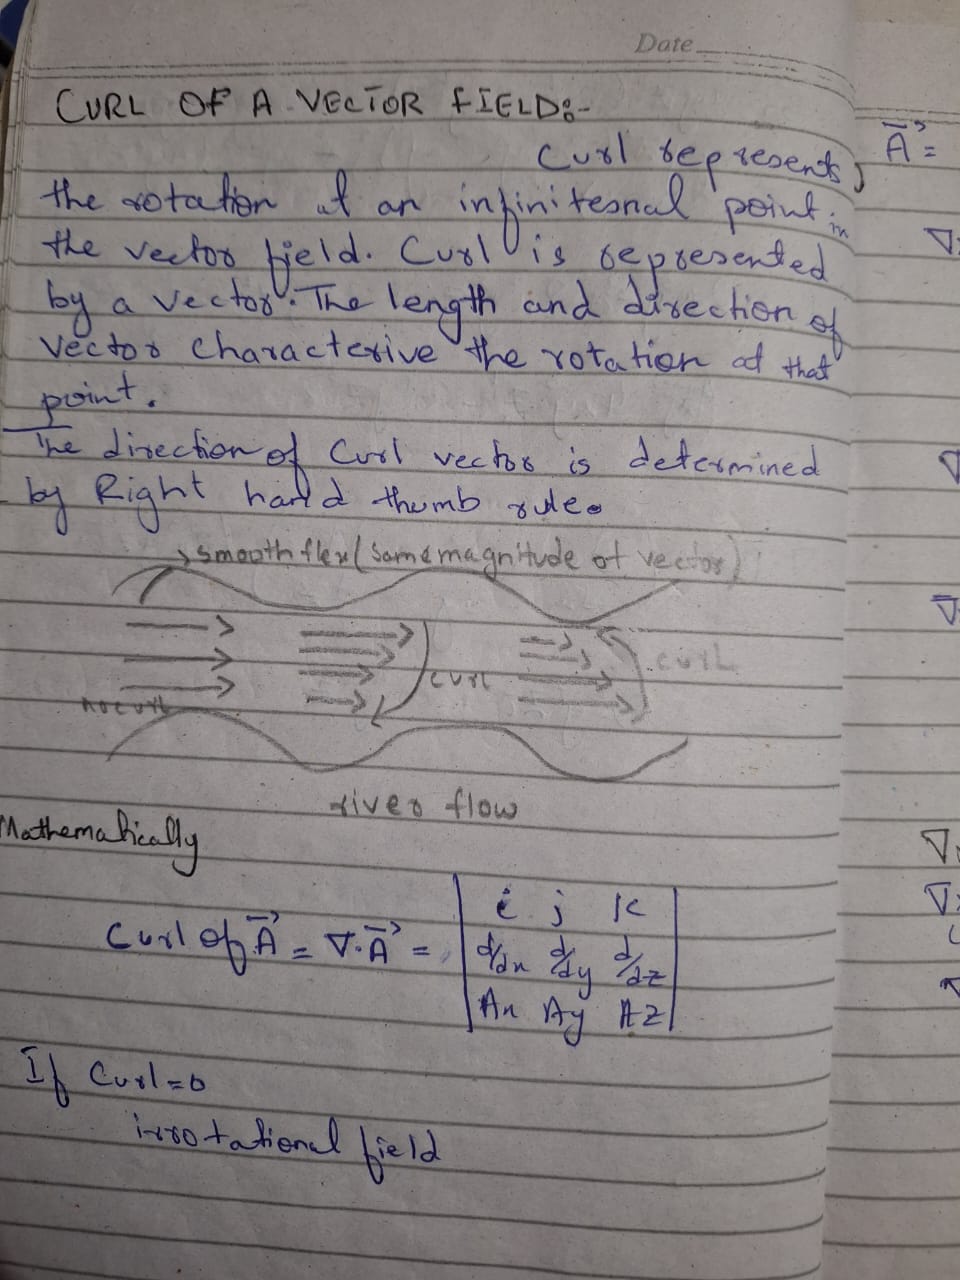 Date
CURL OF A VECTOR FIELD:-
Curl represents
the rotation of an infinitesnal point in
the vector field. Curl is represented
by a vector. The length and direction of
vector characterive the rotation at that
point.
The direction of Curl vector is determined
by Right hand thumb rule.
smooth flex (Same magnitude of vector)
curl
curl
no curl
river flow
Mathematically
Curl of A⃗ = ∇·A⃗ = | i j k |
| d/dx d/dy d/dz |
| Ax Ay Az |
If Curl=0
irrotational field
A⃗ =